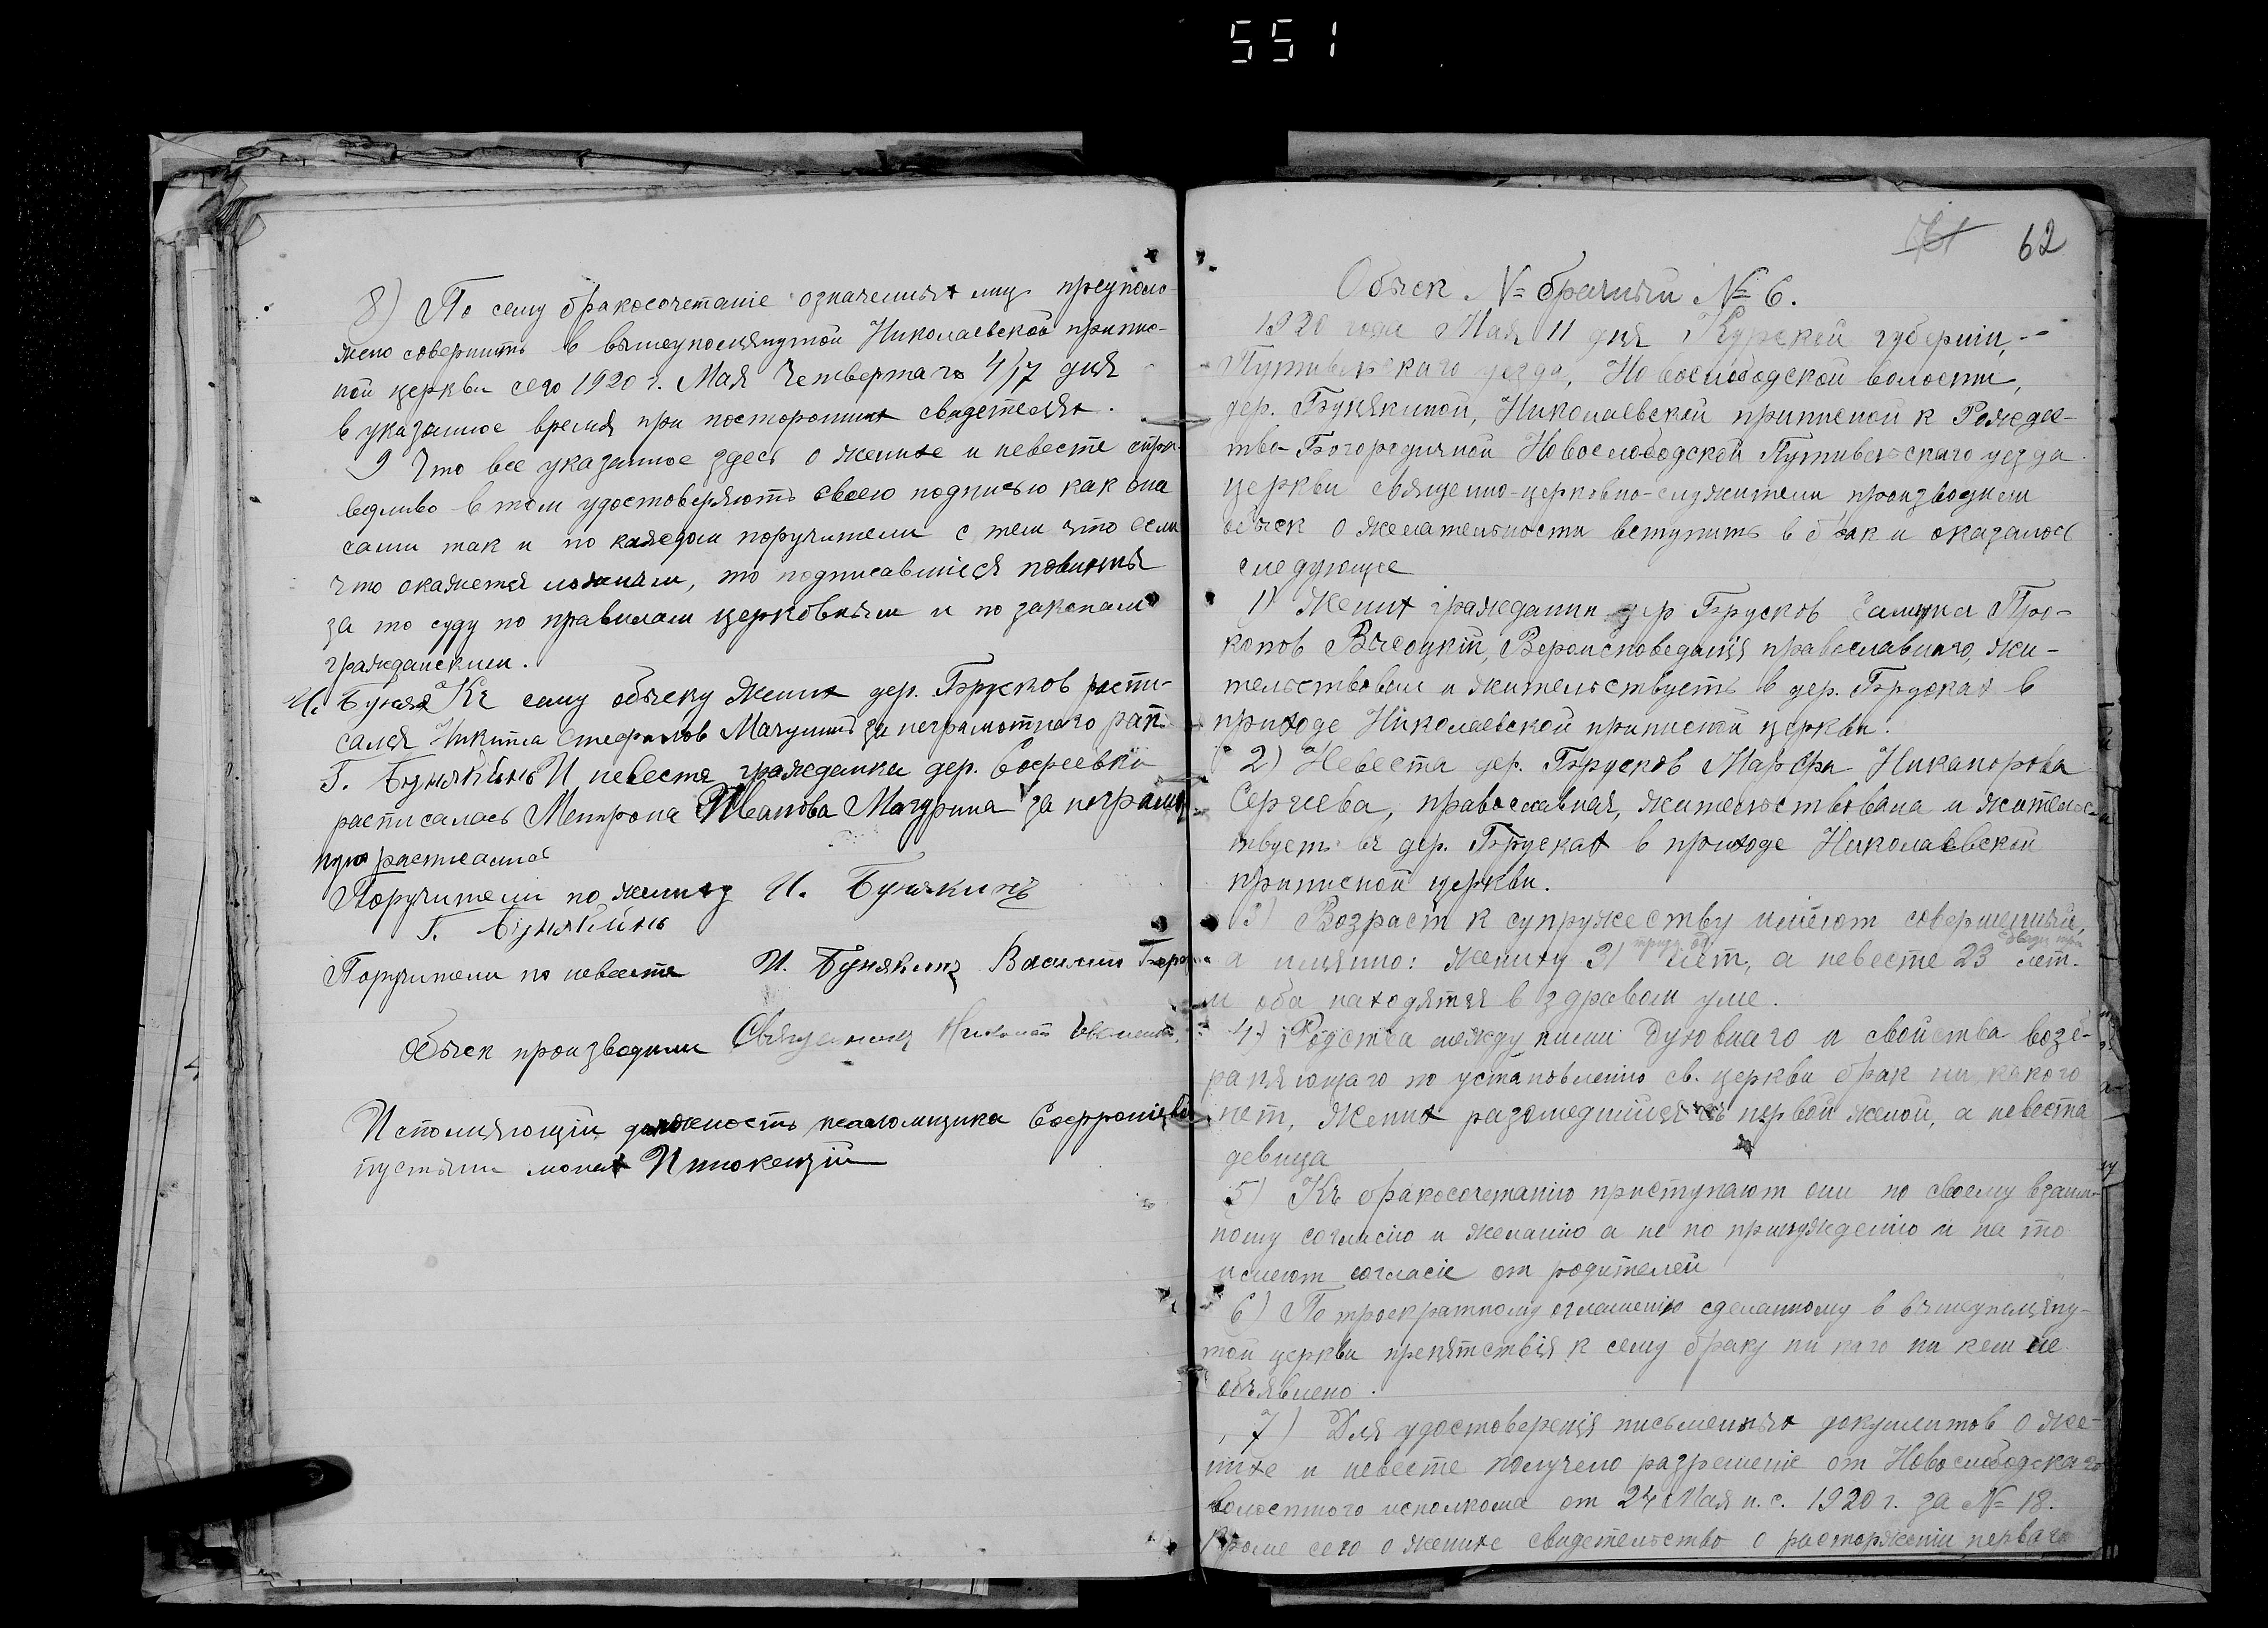 551
8) По сему бракосочетаніе означенных лиц предполо-
жено совершить в вышеупомянутой Николаевской припис-
ной церкви сего 1920 г. Мая Четвертаго 4/17 дня
в указанное время при посторонних свидетелях.
9 Что все указанное здесь о женихе и невесте спра-
ведливо в том удостоверяют своею подписью как они
сами так и по каждом поручители с тем что если
что окажется ложным, то подписавшіеся повинны
за то суду по правилам церковным и по законам
гражданским.
Къ сему обыску жених дер. Брусков распи-
сался Никита Стефанов Мачулин за неграмотнаго рас.
Г. Бунякинъ И невеста гражданка дер. Софеевки
расписалась Матрона Иванова Мачурина за неграмот
ную расписался
Поручители по жениху И. Бунякинъ
Г. Бунякинъ
Поручители по невесте И. Бунякинъ Василий
Обыск производили Священник Николай
Исполняющій должность псаломщика Софроніевой
пустыни монах Иннокентій
62
Обыск № брачный № 6.
1920 года Мая 11 дня Курской губерніи,
Путивльскаго уезда, Новослободской волости,
дер. Бунякиной, Николаевской приписной к Рождес-
тво-Богородичной Новослободской Путивльскаго уезда
церкви священно-церковно-служители производили
обыск о желательности вступить в брак и оказалось
следующее
1) Жених гражданин дер Брусков Про-
копов Высоцкій, Вероисповеданія православнаго, жи-
тельствовал и жительствуетъ в дер. Брусках в
приходе Николаевской приписной церкви.
2) Невеста дер. Брусков Марфа Никанорова
Сергиева, православная, жительствовала и жительс-
твуетъ въ дер. Брусках в приходе Николаевской
приписной церкви.
3) Возраст к супружеству имеют совершенный,
а именно: жениху 31 лет, а невесте 23 лет.
и оба находятся в здравом уме.
4) Родства между ними духовнаго и свойства возб-
раняющаго по установленію св. церкви брак ни какого
нет, Жених разошедшийся съ первой женой, а невеста
девица
5) Къ бракосочетанію приступают они по своему взаим-
ному согласію и желанію а не по принужденію и на то
имеют согласіе от родителей
6) По троекратному оглашенію сделанному в вышеупомяну-
той церкви препятствія к сему браку ни каго ни кем не
объявлено.
7) Для удостоверенія письменных документов о же-
нихе и невесте получено разрешеніе от Новослободскаго
волостного исполкома от 24 Мая н.с. 1920 г. за № 18.
Кроме сего о женихе свидетельство о расторженіи перваго